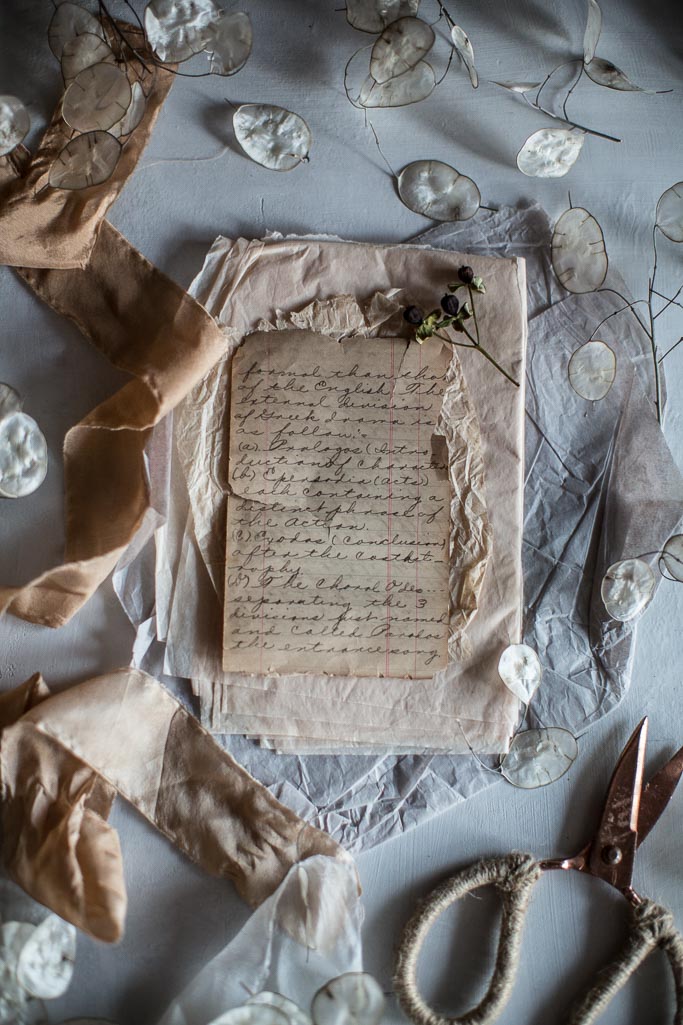 formal than those
of the English. The
external division
of Greek Drama is
as follow:-
(a) Prologos (Intro
duction of Characters
(b) Epersodia (acts)
Each containing a
distinct phrase of
the Action
(c) Exodos (Conclusion)
after the catast-
rophy
(D) The Choral Odes
separating the 3
divisions first named
and called Parados
the entrance song